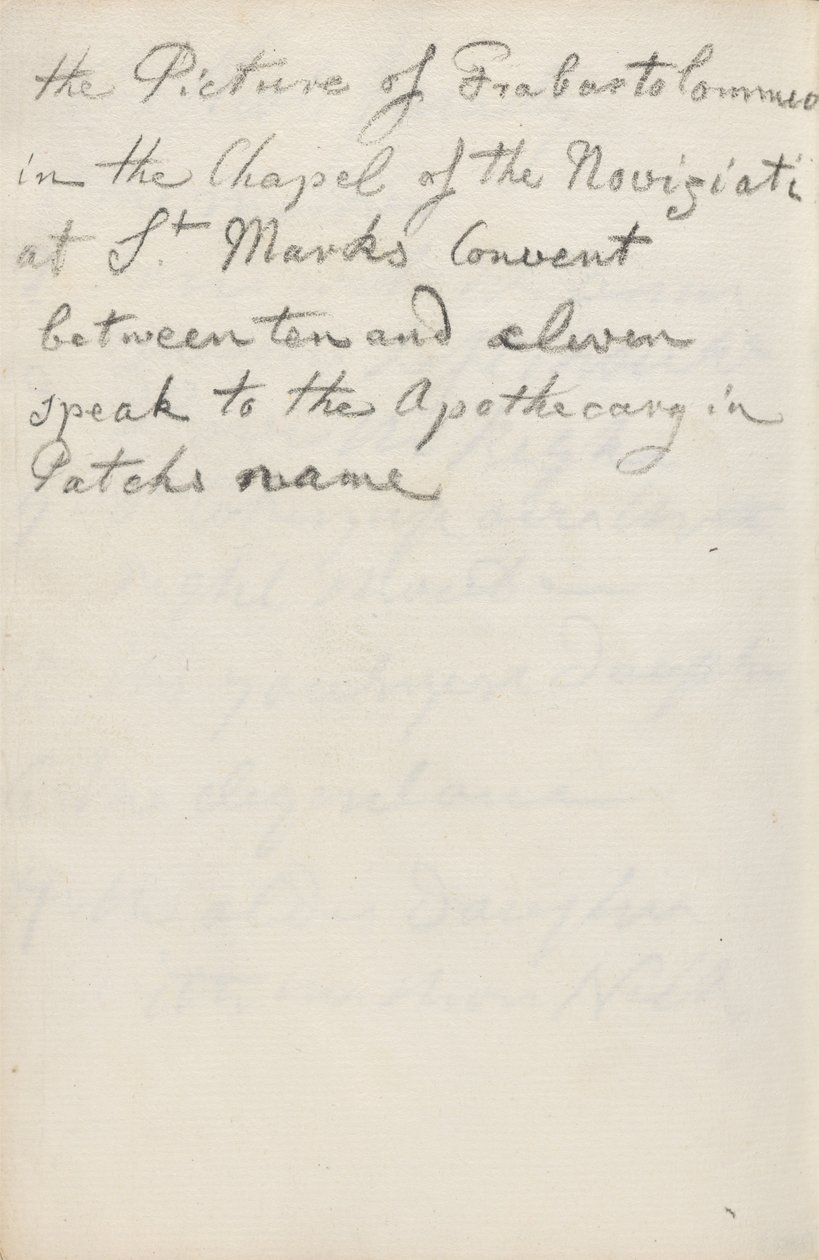 the Picture of Frabartolommeo
in the Chapel of the Noviziati
at St. Marks Convent
between ten and eleven
speak to the Apothecary in
Patchs name